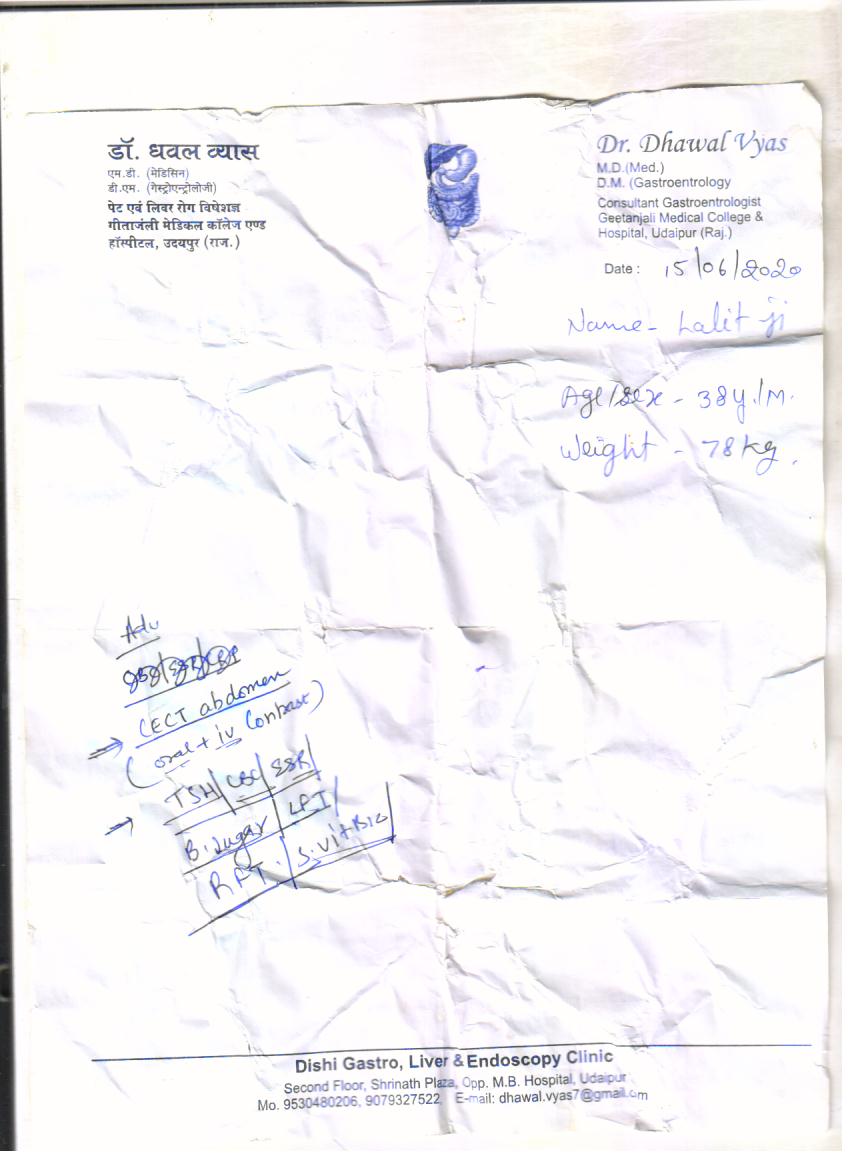 डॉ. धवल व्यास
एम.डी. (मेडिसिन)
डी.एम. (गेस्ट्रोएन्ट्रोलोजी)
पेट एवं लिवर रोग विषेशज्ञ
गीताजंली मेडिकल कॉलेज एण्ड
हॉस्पीटल, उदयपुर (राज.)
Dr. Dhawal Vyas
M.D.(Med.)
D.M. (Gastroentrology
Consultant Gastroentrologist
Geetanjali Medical College &
Hospital, Udaipur (Raj.)
Date : 15/06/2020
Name - Lalit ji
Age/sex - 38y/M.
Weight - 78 kg.
Adv
CECT abdomen
(oral + iv Contrast)
TSH/CBC/ESR/
B. sugar/LFT/
RFT./S. Vit B12/
Dishi Gastro, Liver & Endoscopy Clinic
Second Floor, Shrinath Plaza, Opp. M.B. Hospital, Udaipur
Mo. 9530480206, 9079327522, E-mail: dhawal.vyas7@gmail.com